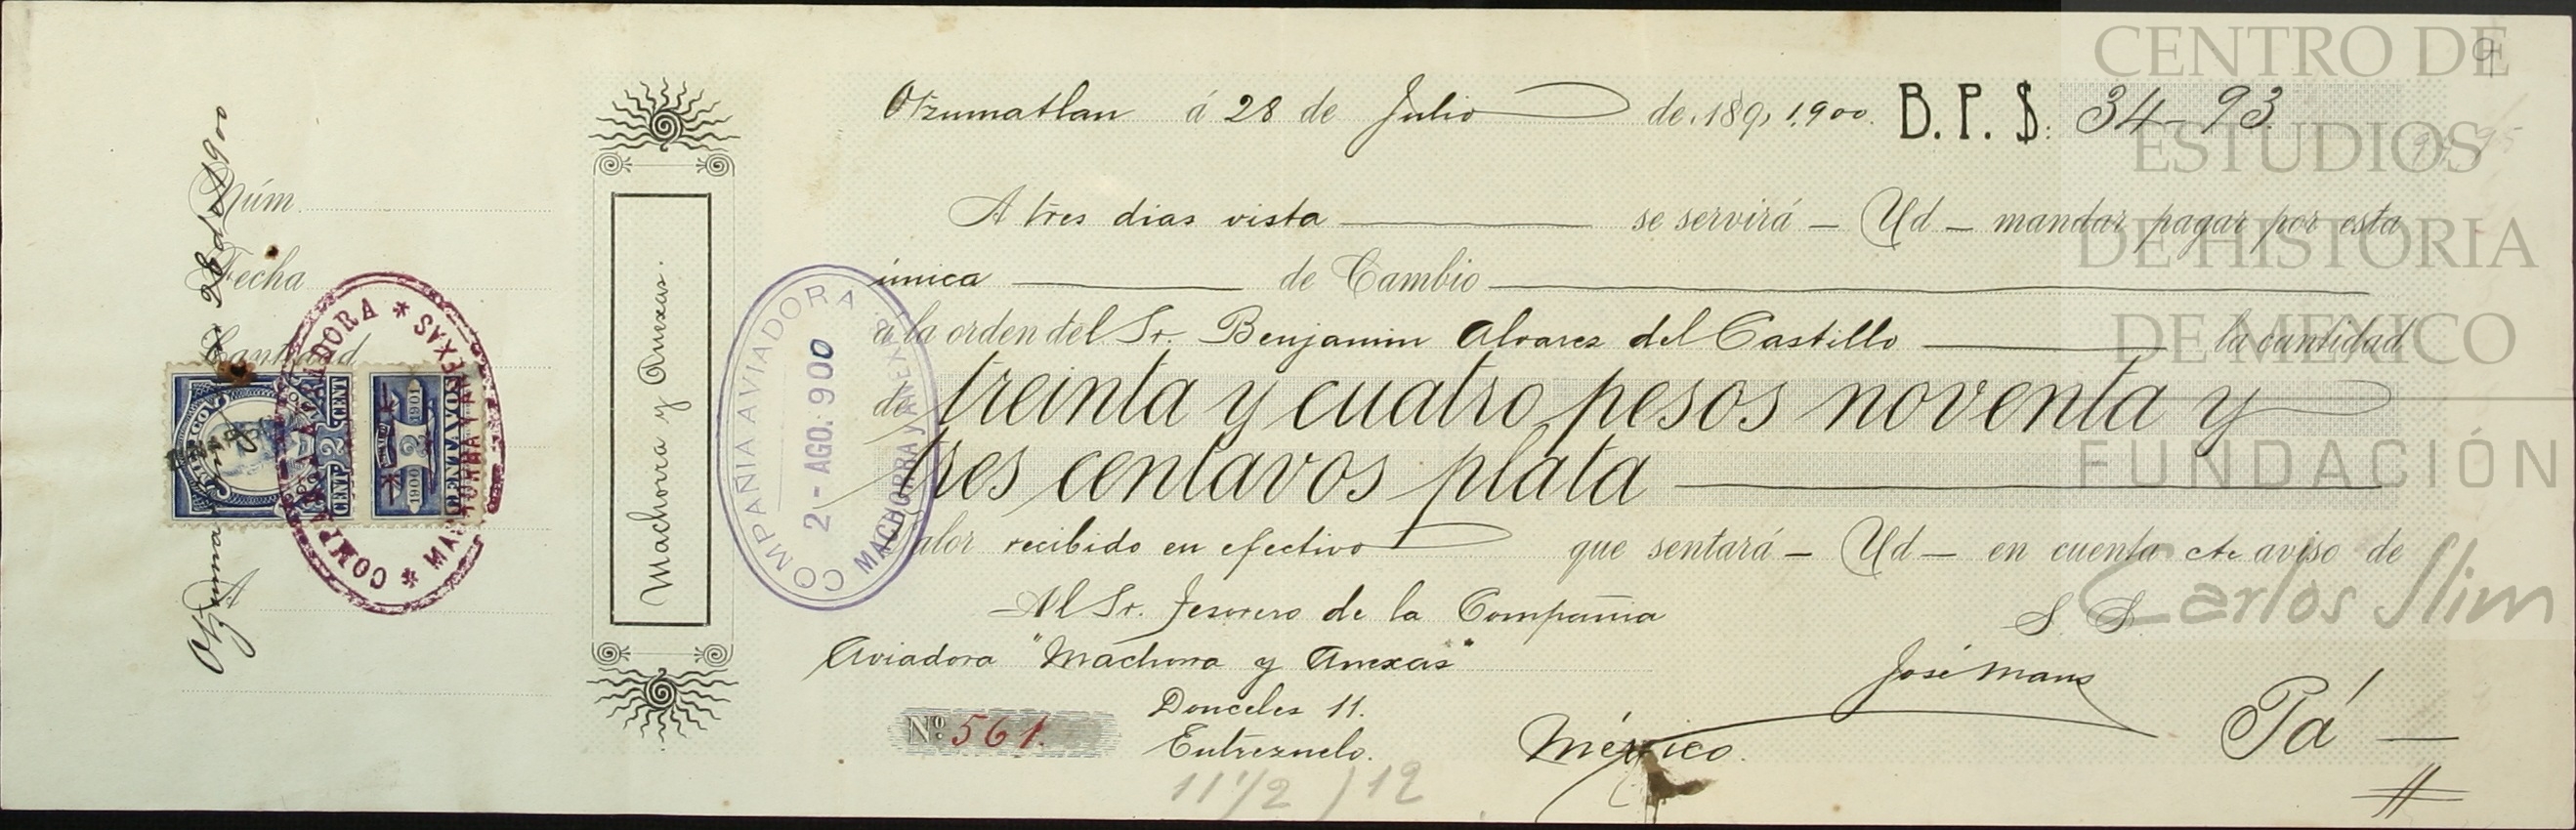 Otzumatlan á 28 de Julio de 189, 1,900. B. P. $: 34-93.
A tres dias vista se servirá - Ud - mandar pagar por esta
única de Cambio
a la orden del Sr. Benjamin Alvarez del Castillo la cantidad
de treinta y cuatro pesos noventa y
tres centavos plata
Valor recibido en efectivo que sentará - Ud - en cuenta cte aviso de
Al Sr. Tesorero de la Compañia
S. S.
Aviadora "Machorra y Anexas"
José
Donceles 11.
Nº 561.
Entrezuelo.
México.
Pá
11 1/2 / 12
Machorra y Anexas.
COMPAÑIA AVIADORA
2 - AGO. 900
MACHORRA Y ANEXAS
Núm.
Fecha
Cantidad
A
28 de 1900
COMPAÑIA AVIADORA * MACHORRA Y ANEXAS *
CENT 2 CENT
1900 2 1901
CENTAVOS
9
CENTRO DE
ESTUDIOS
DE HISTORIA
DE MÉXICO
FUNDACIÓN
Carlos Slim